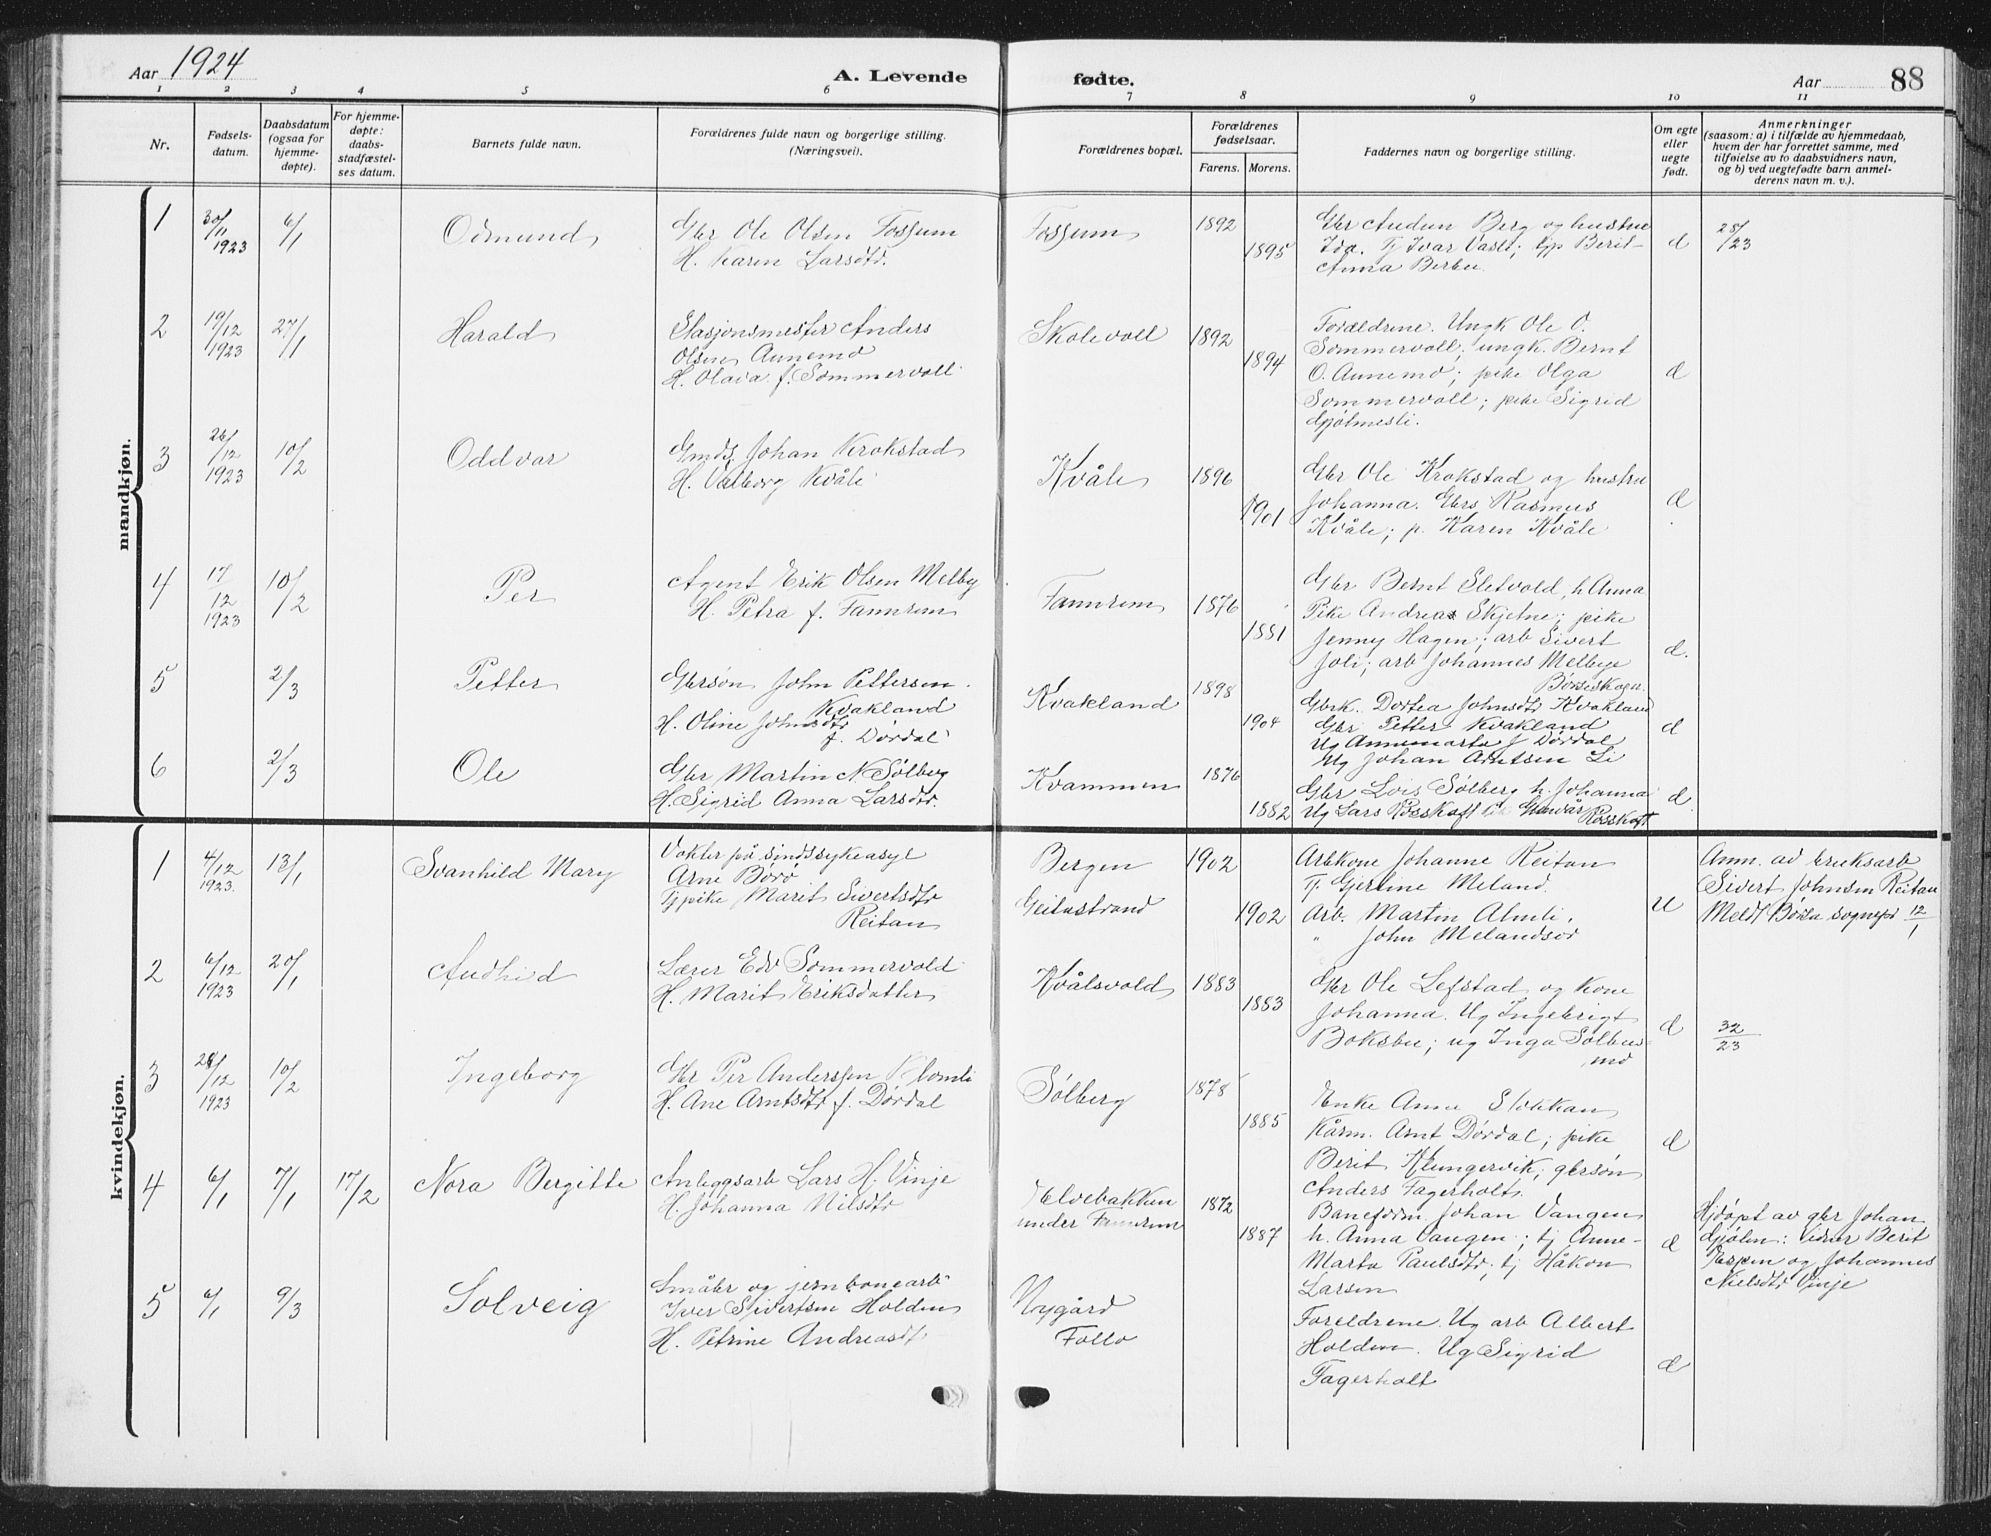 Aar 1924
A. Levende fødte.
Aar 88
1 2 3 4 5 6 7 8 9 10 11
Nr.
Fødsels-
datum.
Daabsdatum
(ogsaa for
hjemme-
døpte).
For hjemme-
døpte:
daabs-
stadfæstel-
ses datum.
Barnets fulde navn.
Forældrenes fulde navn og borgerlige stilling.
(Næringsvei).
Forældrenes bopæl.
Forældrenes
fødselsaar.
Farens. Morens.
Faddernes navn og borgerlige stilling.
Om egte
eller
uegte
født.
Anmerkninger
(saasom: a) i tilfælde av hjemmedaab,
hvem der har forrettet samme, med
tilføielse av to daabsvidners navn,
og b) ved uegtefødte barn anmel-
derens navn m. v.).
mandkjøn.
1
30/11
1923
6/1
Odmund
Gbr Ole Olsen Fossum
H. Karen Larsdtr.
Fossum
1892
1895
Gbr Audun Berg og hustru
Ida. Tj Ivar Vasli; tjp Berit
Anna Berbu
d
28/23
2
19/12
1923
27/1
Harald
Stasjonsmester Anders
Olsen Aunemo
H. Olava f. Sommervoll
Skolevoll
1892
1894
Forældrene. Ungk Ole O.
Sommervoll; ungk. Bernt
O. Aunemo; pike Olga
Sommervoll; pike Sigrid
Gjølmesli.
d
3
26/12
1923
10/2
Oddvar
Gmds Johan Krokstad
H. Valborg Kvåle
Kvåle
1896
1901
Gbr Ole Krokstad og hustru
Johanna. Gbrs Rasmus
Kvåle; p. Karen Kvåle
d
4
17
12
1923
10/2
Per
Agent Erik Olsen Melby
H. Petra f. Fannrem
Fannrem
1876
1881
Gbr Bernt Sletvold, h Anna
Pike Andrea Skjetne; pike
Jenny Hagen; arb Sivert
Joli; arb Johannes Melbye
Børseskogn.
d.
5
2/3
Petter
Gbrsøn John Pettersen
Kvakland
H. Oline Johnsdtr
f. Dørdal
Kvakland
1898
1904
Gbrk. Dortea Johnsdtr Kvakland
Gbr Petter Kvakland
Ug Annemarta J Dørdal
Ug Johan Arntsen Li
d
6
2/3
Ole
Gbr Martin N Sølberg
H. Sigrid Anna Larsdtr.
Kvammen
1876
1882
Gbr Lois Sølberg h. Johanna
Ug Lars Rosskaft Gunvår
Rosskaft
d
kvindekjøn.
1
4/12
1923.
13/1
Svanhild Mary
Vokter på sindssykeasyl
Arne Børø
Tjpike Marit Sivertsdtr
Reitan
Bergen
Geitastrand
1902
1902
Arbkone Johanne Reitan
Tj. Gjertine Meland
Arb. Martin Almli.
" John Melandsør
u
Anm. av bruksarb
Sivert Johnsen Reitan
Meldt Børsa sognepr 12/1
2
6/12
1923
20/1
Audhild
Lærer Edv Sommervold
H. Marit Eriksdatter
Kvålsvold
1883
1883
Gbr Ole Lefstad og kone
Johanna. Ug Ingebrigt
Boksbu; ug Inga Sølbus-
mo
d
32
23
3
28/12
1923
10/2
Ingeborg
Gbr Per Anderssen Klomli
H. Ane Arntsdtr f. Dørdal
Sølberg
1878
1885
Enke Anne Slokkan
Kårm. Arnt Dørdal; pike
Berit Klungervik; gbrsøn
Anders Fagerholt.
d
4
6/1
7/1
17/2
Nora Bergitte
Anleggsarb Lars H. Vinje
H. Johanna Nilsdtr
Elvebakken
under Fannrem
1872
1887
Baneform Johan Vangen
h. Anna Vangen; tj Anne-
Marta Paulsdtr; tj Håkon
Larsen
d
Hjdøpt av gbr Johan
Gjølen: Berit
Espen og Johannes
Nielsdtr Vinje
5
6/1
9/3
Solveig
Småbr og jernbanearb
Iver Sivertsen Holden
H. Petrine Andreasdt
Nygård
Follo
Foreldrene. Ug arb Albert
Holden. Ug Sigrid
Fagerholt
d